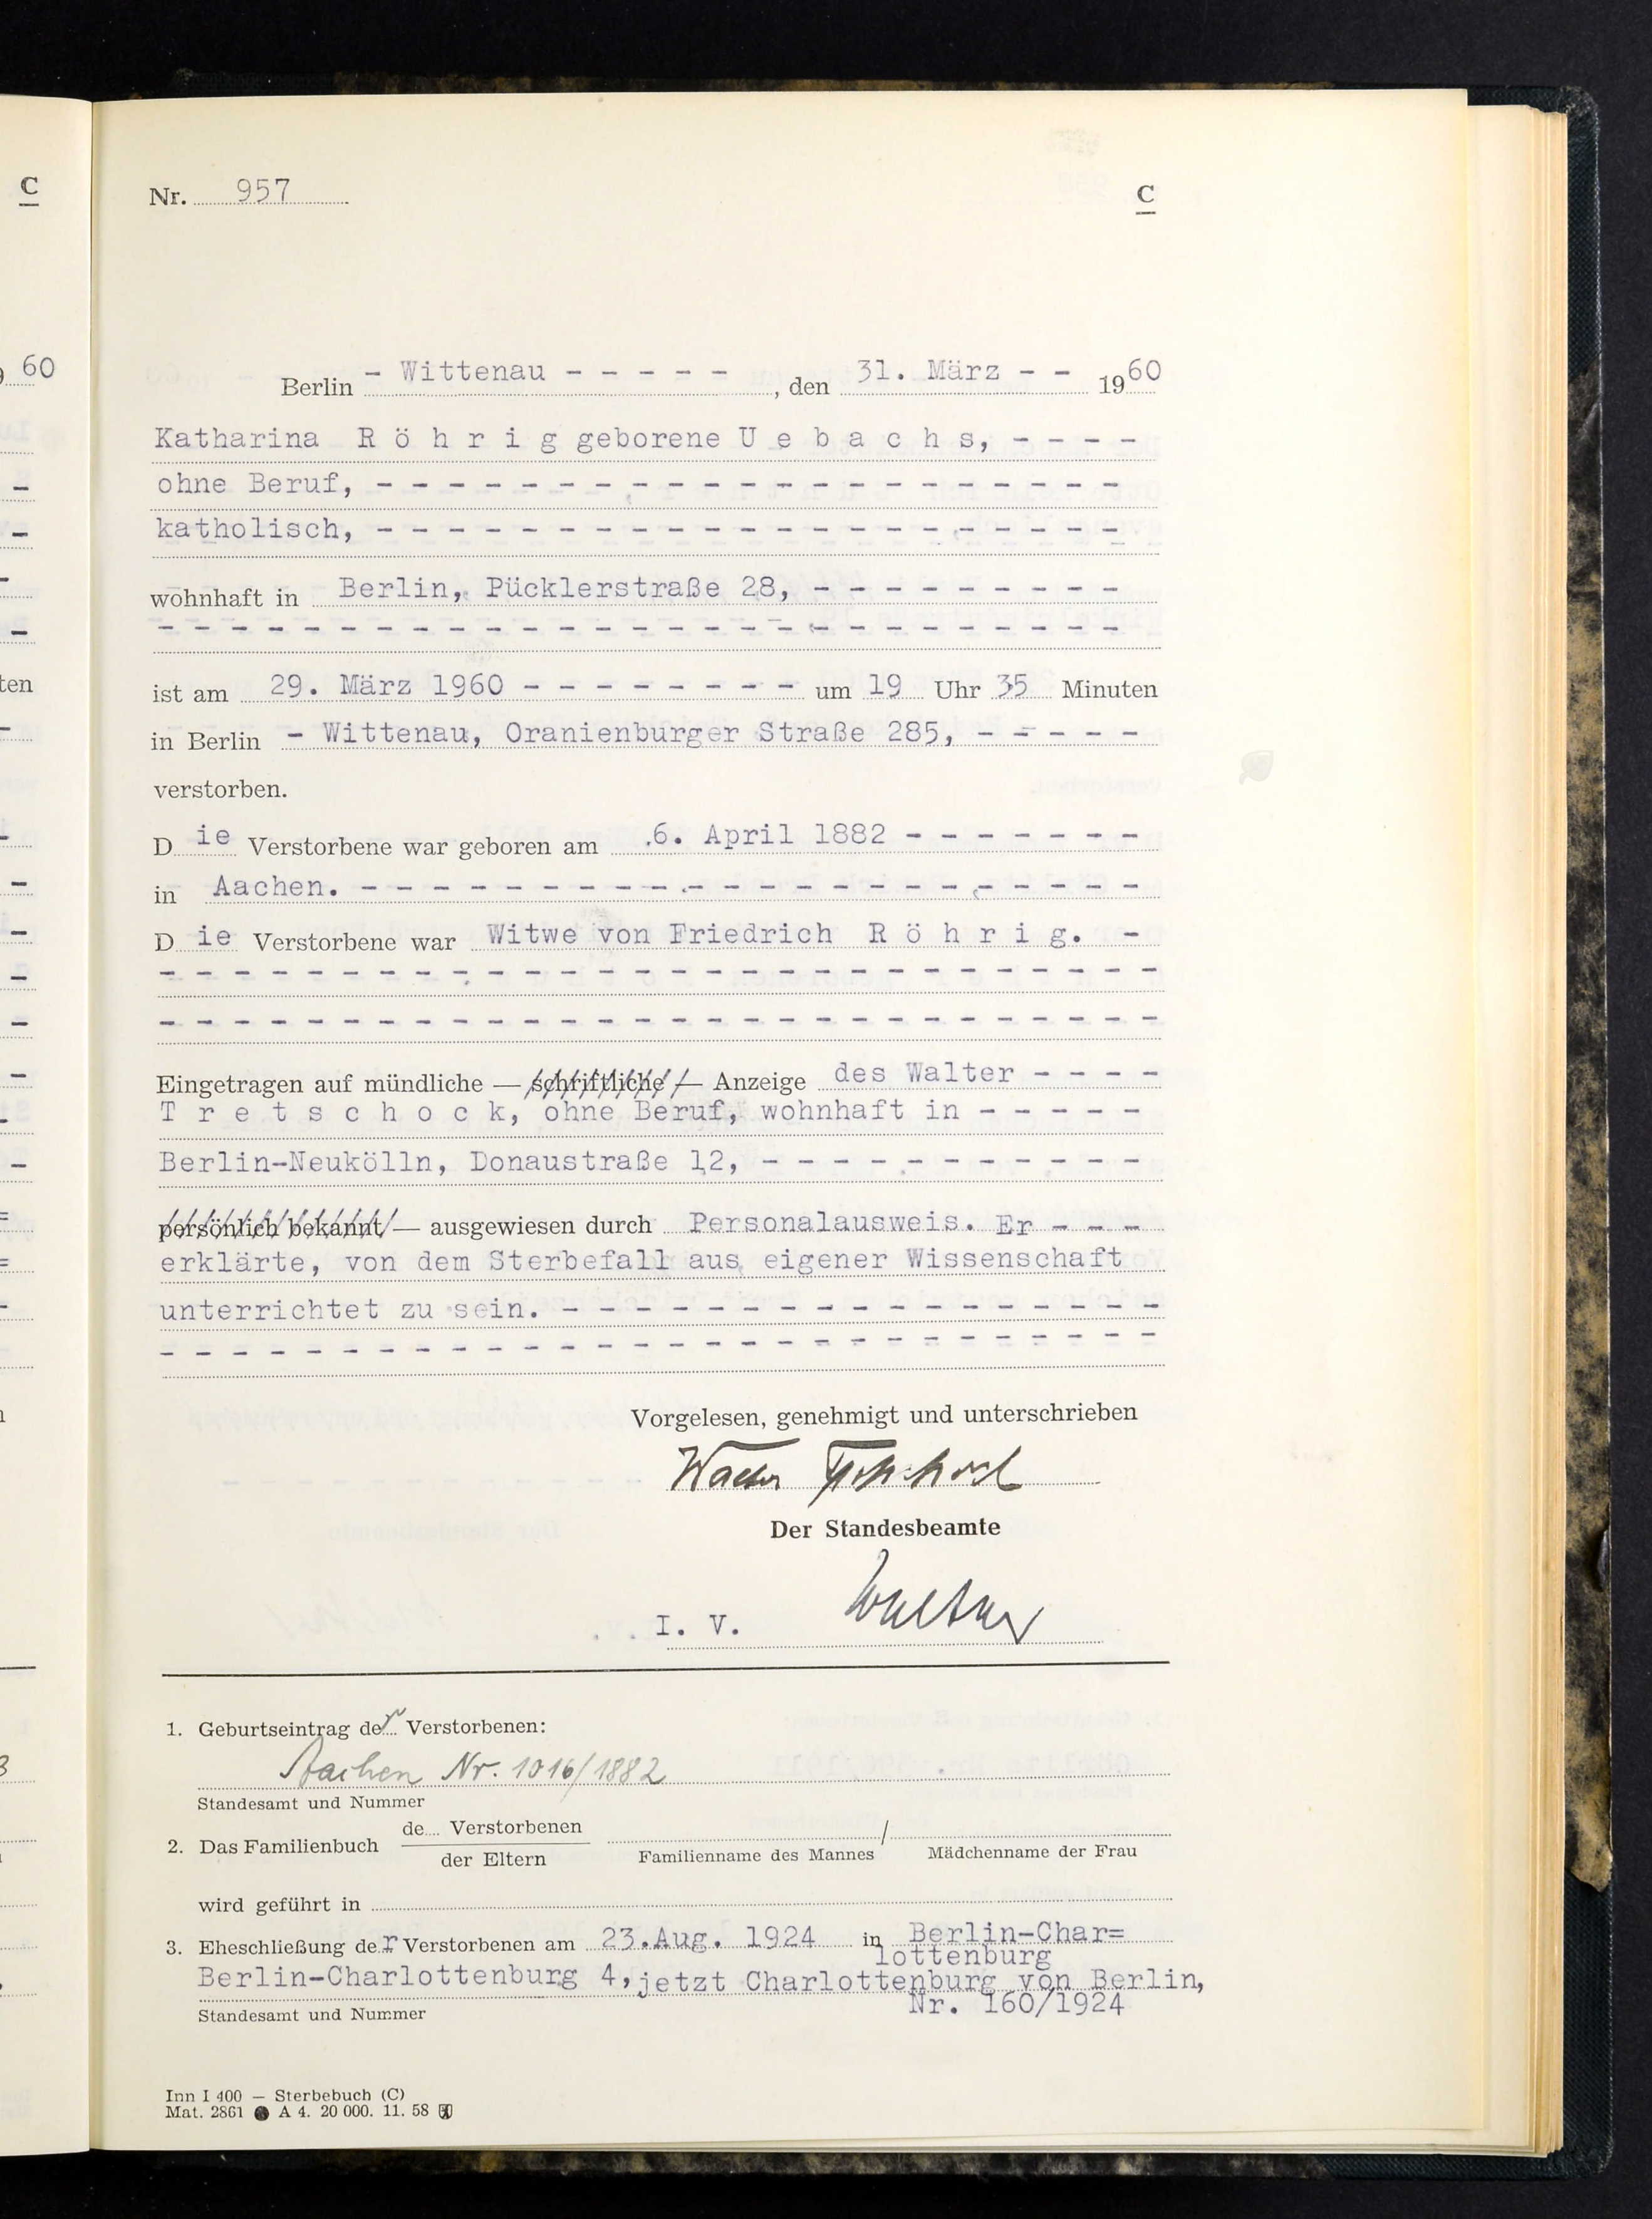 C
Nr. 957
C
60
Berlin - Wittenau - - - - -, den 31. März - - 1960
Katharina R ö h r i g geborene U e b a c h s, - - - -
ohne Beruf, - - - - - - - - - - - - - - - - - - - - -
katholisch, - - - - - - - - - - - - - - - - - - - - -
wohnhaft in Berlin, Pücklerstraße 28, - - - - - - - - -
- - - - - - - - - - - - - - - - - - - - - - - - - - -
ten
ist am 29. März 1960 - - - - - - - - um 19 Uhr 35 Minuten
in Berlin - Wittenau, Oranienburger Straße 285, - - - - -
verstorben.
Die Verstorbene war geboren am 6. April 1882 - - - - - - -
in Aachen. - - - - - - - - - - - - - - - - - - - - - -
Die Verstorbene war Witwe von Friedrich R ö h r i g. -
- - - - - - - - - - - - - - - - - - - - - - - - - - - -
- - - - - - - - - - - - - - - - - - - - - - - - - - - -
Eingetragen auf mündliche — schriftliche — Anzeige des Walter - - - -
T r e t s c h o c k, ohne Beruf, wohnhaft in - - - - -
Berlin-Neukölln, Donaustraße 12, - - - - - - - - - - -
persönlich bekannt — ausgewiesen durch Personalausweis. Er - - -
erklärte, von dem Sterbefall aus eigener Wissenschaft
unterrichtet zu sein. - - - - - - - - - - - - - - - - -
- - - - - - - - - - - - - - - - - - - - - - - - - - - -
Vorgelesen, genehmigt und unterschrieben
Walter
Der Standesbeamte
I. V.
1. Geburtseintrag der Verstorbenen:
Aachen Nr. 1016/1882
Standesamt und Nummer
2. Das Familienbuch de.... Verstorbenen
der Eltern
/
Familienname des Mannes Mädchenname der Frau
wird geführt in
3. Eheschließung der Verstorbenen am 23.Aug. 1924 in Berlin-Char=
lottenburg
Berlin-Charlottenburg 4, jetzt Charlottenburg von Berlin,
Nr. 160/1924
Standesamt und Nummer
Inn I 400 — Sterbebuch (C)
Mat. 2861 A 4. 20 000. 11. 58